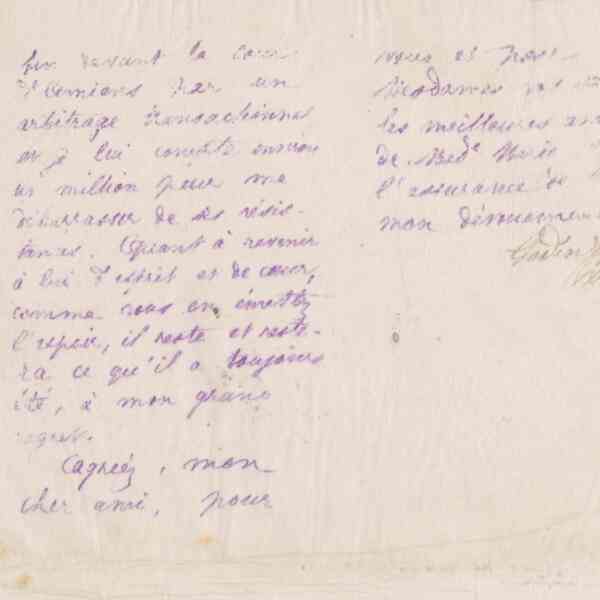 fin devant la cour
d'Amiens par un
arbitrage transactionnel
où je lui compte environ
un million pour me
débarrasser de ses résis-
tances. Quant à revenir
à lui d'esprit et de cœur,
comme vous en émettez
l'espoir, il reste et reste-
ra ce qu'il a toujours
été, à mon grand
regret.
Agréez, mon
cher ami, pour
vous et pour
Mesdames vos
les meilleures
de Mad<sup>e</sup> Marie
l'assurance de
mon dévouement
Godin